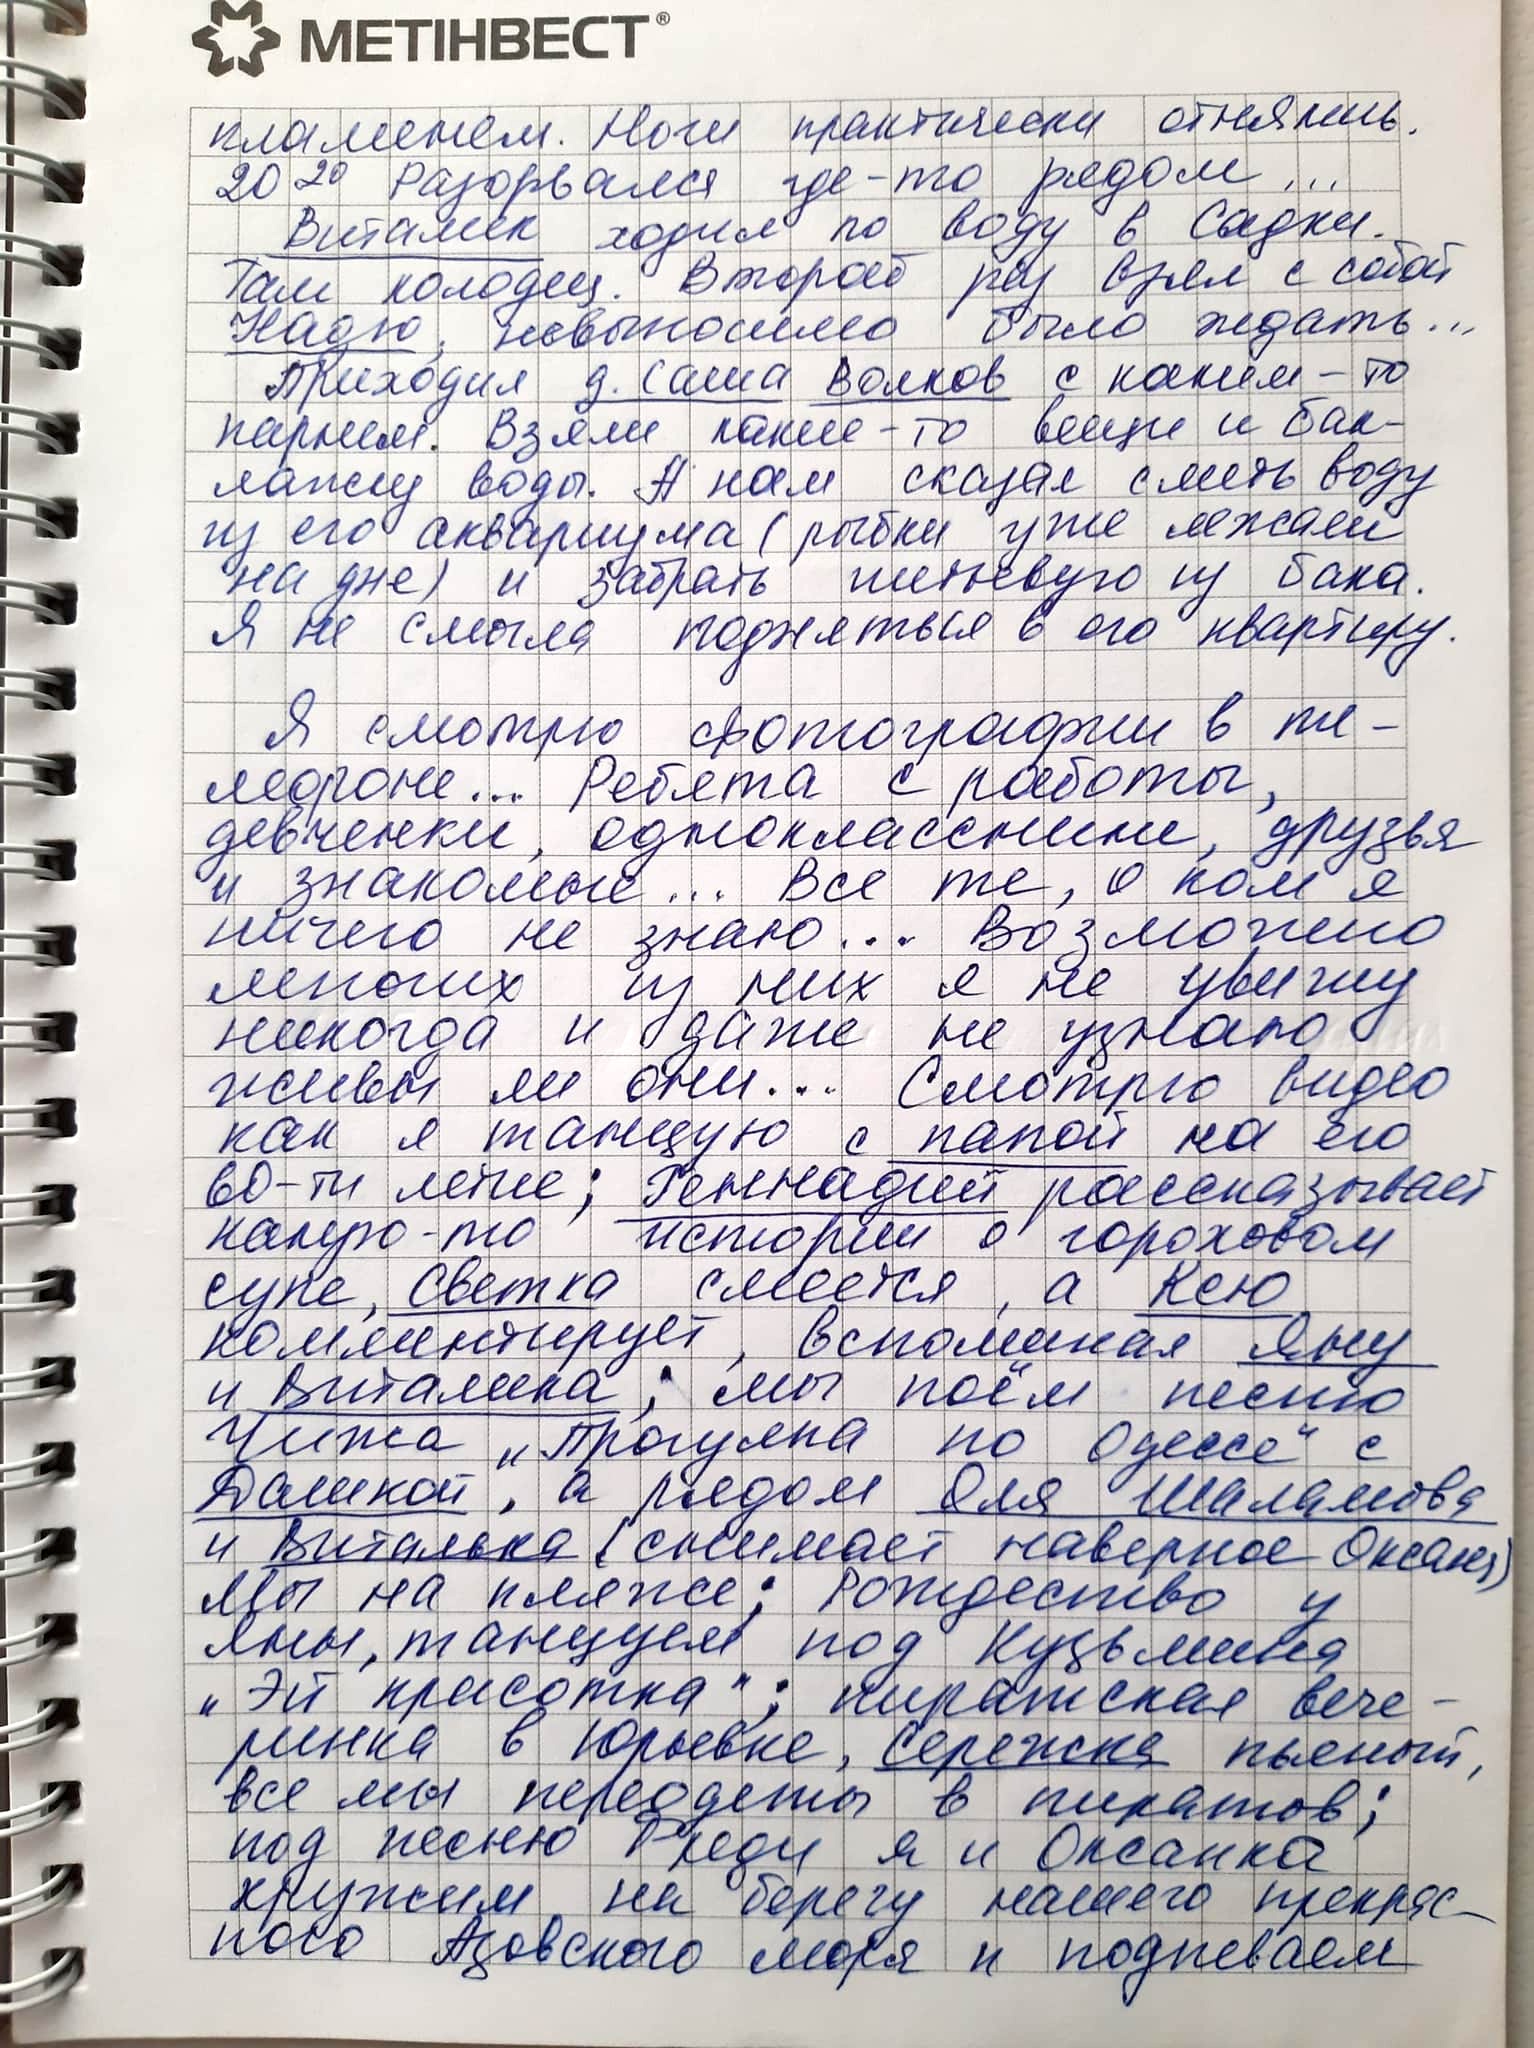 МЕТІНВЕСТ®
пламенем. Ноги практически отнялись.
20 20 Разорвался где-то рядом...
Виталик ходил по воду в Садки.
Там колодец. Второй раз взял с собой
Надю, невыносимо было ждать...
Приходил д. Саша Волков с каким-то
парнем. Взяли какие-то вещи и бак-
лажку воды. А нам сказал слить воду
из его аквариума (рыбки уже лежали
на дне) и забрать питьевую из бака.
Я не смогла подняться в его квартиру.
Я смотрю фотографии в те-
лефоне... Ребята с работы,
девченки, одноклассники, друзья
и знакомые... Все те, о ком я
ничего не знаю... Возможно
многих из них я не увижу
никогда и даже не узнаю
живы ли они... Смотрю видео
как я танцую с папой на его
60-ти летие; Геннадий рассказывает
какую-то историю о гороховом
супе, Светка смеётся, а Ксю
комментирует, вспоминая Яну
и Виталика; мы поём песню
Чижа „Прогулка по Одессе“ с
Даликой, а рядом Оля Шаламова
и Виталька (снимает наверное Оксана)
Мы на пляже; Рождество у
Яны, танцуем под Кузьмина
„Эй красотка“; пиратская вече-
ринка в Юрьевке, Сережка пьяный,
все мы переодеты в пиратов;
под песню Фреди я и Оксанка
кружим на берегу нашего прекрас-
ного Азовского моря и подпеваем